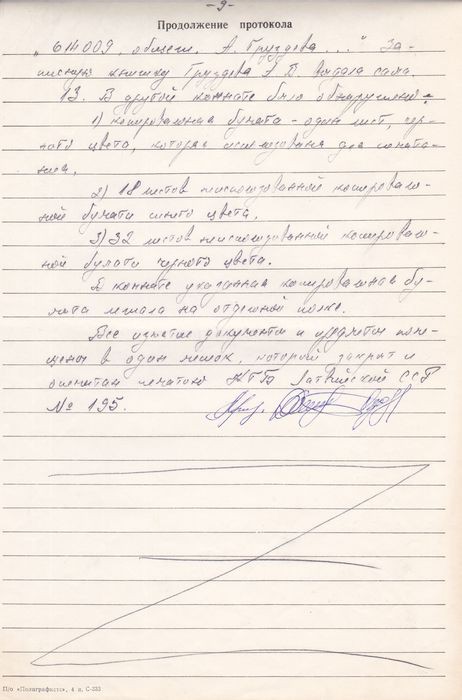 - 9 -
Продолжение протокола
„ 614009, общеж. А. Груздева ..." За-
писную книжку Груздева Э.В. выдала сама.
13. В другой комнате было обнаружено:
1) копировальная бумага - один лист, чер-
ного цвета, которая использована для печата-
ния,
2) 18 листов неиспользованной копироваль-
ной бумаги синего цвета,
3) 32 листов неиспользованной копироваль-
ной бумаги черного цвета.
В комнате указанная копировальная бу-
мага лежала на отдельной полке.
Все изъятые документы и предметы поме-
щены в один мешок, который закрыт и
опечатан печатью КГБ Латвийской ССР
№ 195.
П/о «Полиграфист», 4 ц. С-333